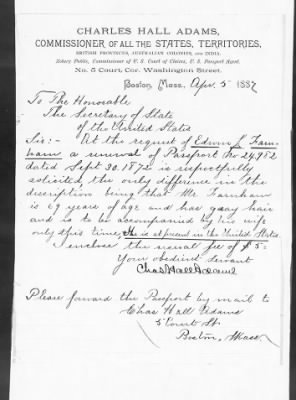 CHARLES HALL ADAMS,
COMMISSIONER OF ALL THE STATES, TERRITORIES,
BRITISH PROVINCES, AUSTRALIAN COLONIES, AND INDIA.
Notary Public, Commissioner of U. S. Court of Claims, U. S. Passport Agent.
No. 5 Court, Cor. Washington Street.
Boston, Mass., Apr. 5 1887
To The Honorable
The Secretary of State
of the United States
Sir:- At the request of Edwin Farn-
ham a renewal of Passport No 24,912
dated Sept 30. 1872 is respectfully
solicited, the only difference in the
discription being that Mr Farnham
is 69 years of age and has gray hair
and is to be accompanied by his wife
only this time, He is at present in the United States
I enclose the usual fee of $5-
Your obedient servant
Chas Hall Adams
Please forward the Passport by mail to
Chas Hall Adams
5 Court St
Boston, Mass.